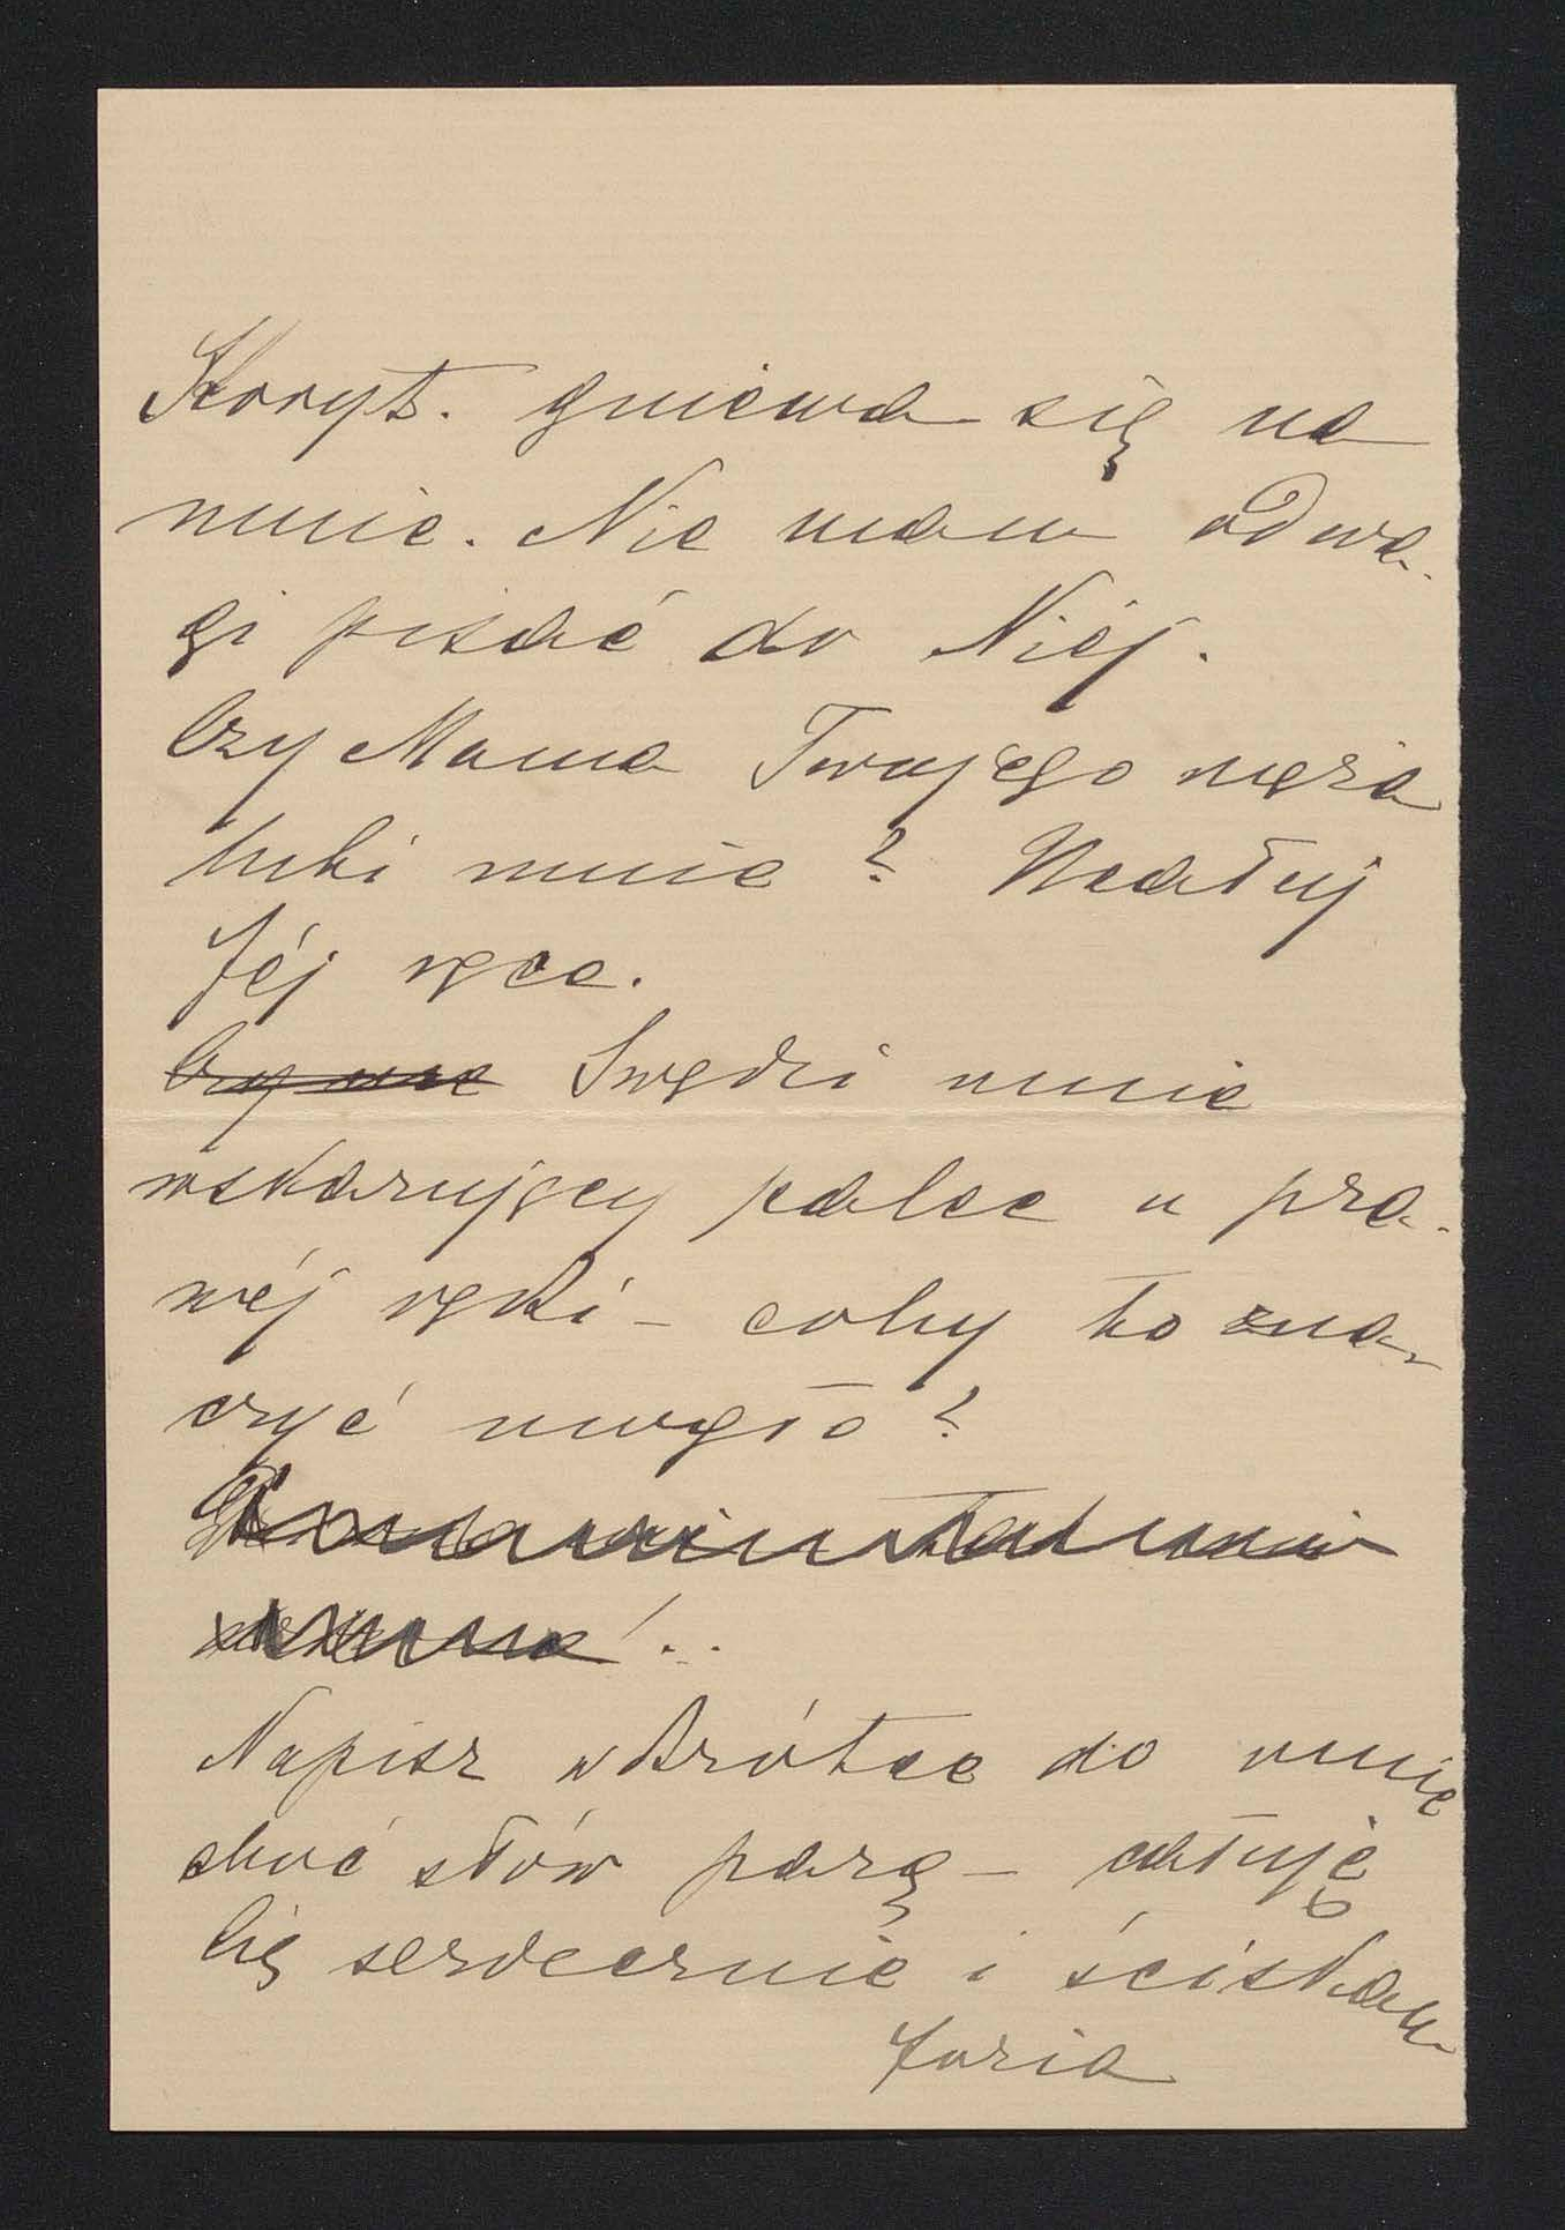 Koryt. gniewa się na
mnie. Nie mam odwa-
gi pisać do Niéj.
Czy Mama Twojego męża
lubi mnie? Ucałuj
Jéj ręce.
Czy nie Swędzi mnie
wskazujący palec u pra-
wéj ręki – coby to zna-
czyć mogło?
Napisz wkrótce do mnie
choć słów parę – całuję
Cię serdecznie i ściskam
Józia